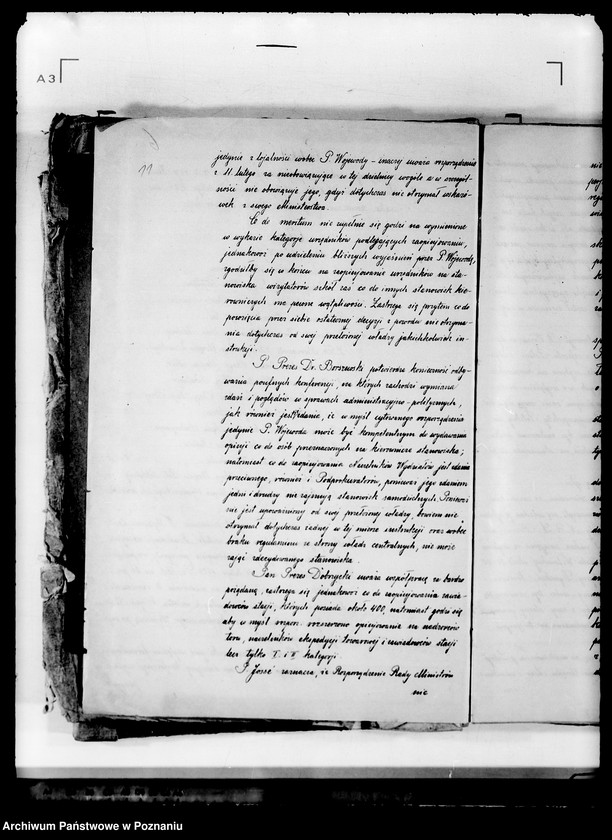 A3
11
jedynie z lojalności wobec P. Wojewody - inaczej uważa rozporządzenie
z 11. lutego za nieobowiązujące w tej dzielnicy wogóle a w szczegól-
ności nie obowiązuje jego, gdyż dotychczas nie otrzymał wskazó-
wek z swego Ministerstwa.
Co do meritum nie zupełnie się godzi na wymienione
w wykazie kategorje urzędników podlegających zaopinjowaniu,
jednakowoż po udzieleniu bliższych wyjaśnień przez P. Wojewodę,
zgodziłby się w końcu na zaopinjowanie urzędników na sta-
nowiska wizytatorów szkół zaś co do innych stanowisk kie-
rowniczych ma pewne wątpliwości. Zastrzega się przytem co do
powzięcia przez siebie ostatecznej decyzji z powodu nie otrzyma-
nia dotychczas od swej przełożonej władzy jakichkolwiek in-
strukcji.
P. Prezes Dr. potwierdza konieczność odby-
wania poufnych konferencji, na których zachodzi wymiana
zdań i poglądów w sprawach administracyjno-politycznych,
jak również jest zdania, że w myśl cytowanego rozporządzenia
jedynie P. Wojewoda może być kompetentnym do wydawania
opinji co do osób przeznaczonych na kierownicze stanowiska;
natomiast co do zaopinjowania Naczelników Wydziałów jest zdania
przeciwnego, również i Podprokuratorów, ponieważ jego zdaniem
jedni i drudzy nie zajmują stanowisk samodzielnych. Ponieważ
nie jest upoważniony od swej przełożonej władzy, bowiem nie
otrzymał dotychczas żadnej w tej mierze instrukcji oraz wobec
braku regulaminu ze strony władz centralnych, nie może
zająć zdecydowanego stanowiska.
Pan Prezes Dobrzycki uważa współpracę za bardzo
pożądaną, zastrzega się jednakowoż co do zaopinjowania zawia-
dowców stacji, których posiada około 400, natomiast godzi się
aby w myśl rozporz. rozszerzono opinjowanie na nadzorców
toru, naczelników ekspedycji towarowej i zawiadowców stacji
lecz tylko I i II kategorji.
P. zaznacza, że Rozporządzenie Rady Ministrów
nie
Archiwum Państwowe w Poznaniu